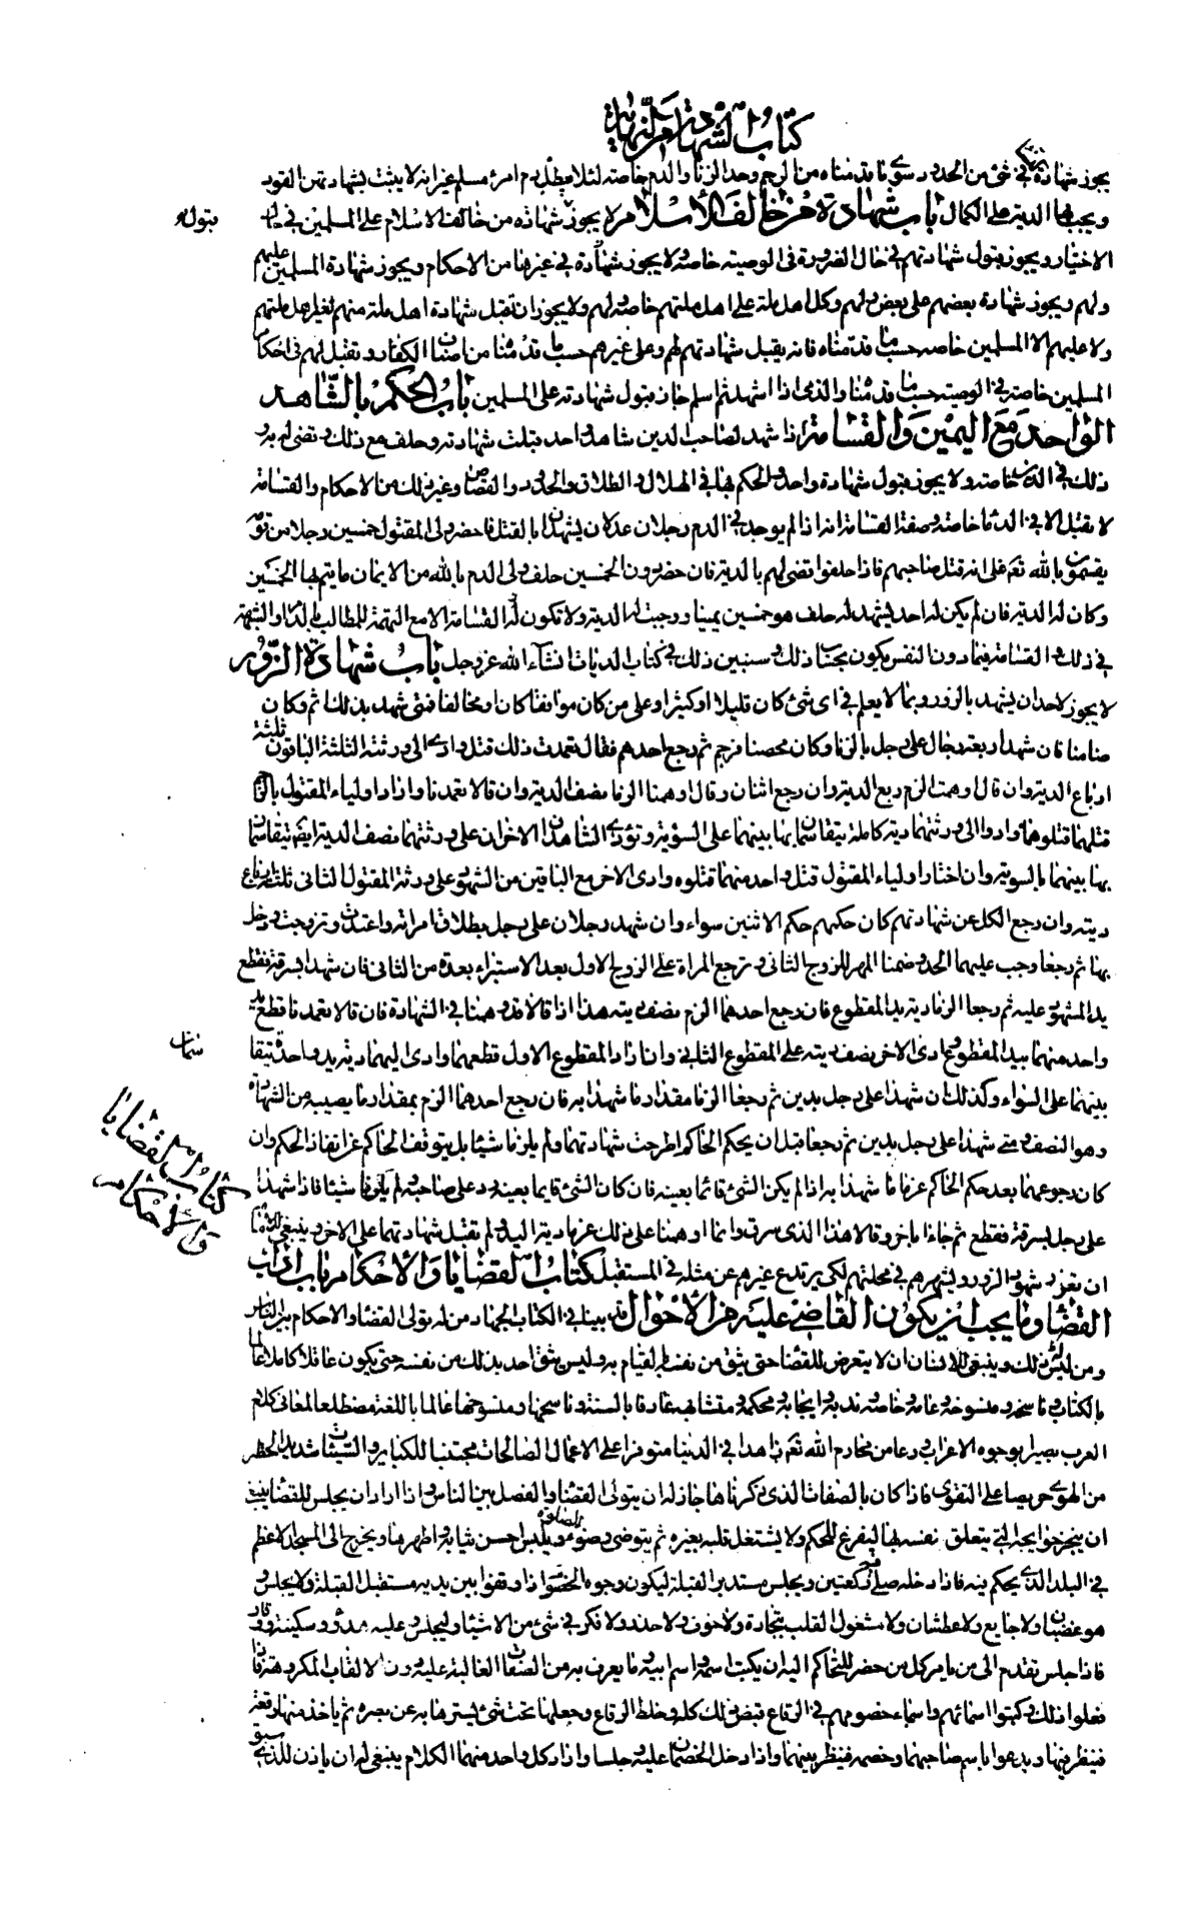 كتاب الشهادة من النهاية
يجوز شهادتهن في شئ من الحدود سوى ما قدمناه من الرجم وحد الزنا والدم خاصة لئلا يبطل دم امرئ مسلم غير انه لا يثبت بشهادتهن القود
ويجب بها الدية على الكمال باب شهادة من خالف الاسلام لا يجوز شهادة من خالف الاسلام على المسلمين في حال
قبول
الاختيار ويجوز قبول شهادتهم في حال الضرورة في الوصية خاصة ولا يجوز شهادة في غيرها من الاحكام ويجوز شهادة المسلمين عليهم
ولهم ويجوز شهادة بعضهم على بعض ولهم وكل اهل ملة على اهل ملتهم خاصة ولهم ولا يجوز ان تقبل شهادة اهل ملة منهم لغير اهل ملتهم
ولا عليهم الا المسلمين خاصة حسب ما قدمناه فانه يقبل شهادتهم لهم وعلى غيرهم حسب ما قدمنا من اصناف الكفار وتقبل لهم في احكام
المسلمين خاصة في الوصية حسب ما قدمنا والذمى اذا اشهد ثم اسلم جاز قبول شهادته على المسلمين باب الحكم بالشاهد
الواحد مع اليمين والقسامة اذا شهد لصاحب الدين شاهد واحد قبلت شهادته وحلف مع ذلك وقضى له به و
ذلك في الدين خاصة ولا يجوز قبول شهادة واحد والحكم بها في الهلال والطلاق والحدود والقصاص وغير ذلك من الاحكام والقسامة
لا تقبل الا في الدماء خاصة وصفة القسامة انه اذا لم يوجد في الدم رجلان عدلان يشهدان بالقتل فاحضر ولى المقتول خمسين رجلا من قومه
يقسمون بالله تعم على انه قتل صاحبهم فاذا حلفوا قضى لهم بالدية فان حضر دون الخمسين حلف ولى الدم بالله من الايمان ما يتم بها الخمسين
وكان له الدية فان لم يكن له احد يشهد له حلف هو خمسين يمينا ووجبت له الدية ولا تكون القسامة الا مع التهمة للمطالب بالدماء والشبهة
في ذلك والقسامة فيما دون النفس يكون بحساب ذلك وسنبين ذلك في كتاب الديات انشاء الله عز وجل باب شهادة الزور
لا يجوز لاحد ان يشهد بالزور وبما لا يعلم في اى شئ كان قليلا او كثيرا وعلى من كان موافقا كان او مخالفا فمتى شهد بذلك اثم وكان
ضامنا فان شهد اربعة رجال على رجل بالزنا وكان محصنا فرجم ثم رجع احدهم فقال تعمدت ذلك قتل وادى الى ورثته الثلثة الباقون ثلثة
ارباع الدية وان قال اوهمت الزم ربع الدية وان رجع اثنان وقالا وهمنا الزما نصف الدية وان قالا تعمدنا واراد اولياء المقتول بالزنا
قتلهما قتلوهما وادوا الى ورثتهما دية كاملة يتقاسمانها بينهما على السوية وتؤدى الشاهدان الاخران على ورثتهما نصف الدية ايضا يتقاسمان
بها بينهما بالسوية وان اختار اولياء المقتول قتل واحد منهما قتلوه وادى الاخر مع الباقين من الشهود على ورثة المقتول الثانى ثلثة ارباع
ديته وان رجع الكل عن شهادتهم كان حكمهم حكم الاثنين سواء وان شهد رجلان على رجل بطلاق امراته واعتدت وتزوجت ودخل
بها ثم رجعا وجب عليهما الحد وضمنا المهر للزوج الثانى وترجع المراة على الزوج الاول بعد الاستبراء بعدة من الثانى فان شهدا بسرقة فقطع
يد المشهود عليه ثم رجعا الزما دية يد المقطوع فان رجع احدهما الزم نصف ديته هذا اذا قالا قد وهمنا في الشهادة فان قالا تعمدنا قطع يد
واحد منهما بيد المقطوع وادى الاخر نصف ديته على المقطوع الثانى وان اراد المقطوع الاول قطعهما وادى اليهما دية يد واحدة يتقا
سمان
بينهما على السواء وكذلك ان شهدا على رجل بدين ثم رجعا الزما مقدار ما شهدا به فان رجع احدهما الزم بمقدار ما يصيبه من الشهادة
وهو النصف ومتى شهدا على رجل بدين ثم رجعا قبل ان يحكم الحاكم اطرحت شهادتهما ولم يلزما شيئا بل يتوقف الحاكم عن انفاذ الحكم وان
كان رجوعهما بعد حكم الحاكم غرما ما شهدا به اذا لم يكن الشئ قائما بعينه فان كان الشئ قايما بعينه رد على صاحبه ولم يلزما شيئا فاذا شهدا
كتاب القضايا والاحكام
على رجل بسرقة فقطع ثم جاءا باخر وقالا هذا الذى سرق وانما اوهمنا على ذلك غرما دية اليد ولم تقبل شهادتهما على الاخر وينبغى للامام
ان يعزر شهود الزور ويشهرهم في محلتهم لكى يرتدع غيرهم عن مثله في المستقبل كتاب القضايا والاحكام باب اداب
القضاء وما يجب ان يكون القاضى عليه من الاحوال قد بينا في الكتاب الجهاد من له تولى القضاء والاحكام بين الناس
ومن ليس له ذلك وينبغى للانسان ان لا يتعرض للقضاء حتى يثق من نفسه بالقيام به وليس يثق احد بذلك من نفسه حتى يكون عاقلا كاملا عالما
بالكتاب وناسخه ومنسوخه وعامه وخاصه وندبه وايجابه ومحكمه ومتشابهه عارفا بالسنة وناسخها ومنسوخها عالما باللغة مضطلعا بمعانى كلام
العرب بصيرا بوجوه الاعراب ورعا من محارم الله تعم زاهدا في الدنيا متوفرا على الاعمال الصالحات مجتنبا للكباير والسيئات شديد الحذر
من الهوى حريصا على التقوى فاذا كان بالصفات الذى ذكرناها جاز له ان يتولى القضاء والفصل بين الناس واذا اراد ان يجلس للقضاء ينبغى
ان ينجز حوايجه التى يتعلق نفسه بها ليفرغ للحكم ولا يشتغل قلبه بغيره ثم يتوضى وضوء الصلوة ويلبس احسن ثيابه واطهرها ويخرج الى المسجد الاعظم
في البلد الذى يحكم فيه فاذا دخله صلى فيه ركعتين ويجلس مستدبر القبلة ليكون وجوه الخصوم اذا وقفوا بين يديه مستقبل القبلة ولا يجلس و
هو غضبان ولا جايع ولا عطشان ولا مشغول القلب بتجارة ولا خوف ولا حزن ولا فكر في شئ من الاشياء وليجلس وعليه هدؤ وسكينة ووقار
فاذا جلس تقدم الى من يامر كل من حضر للتحاكم اليه ان يكتب اسمه واسم ابيه وما يعرف به من الصفات الغالبة عليه دون الالقاب المكروهة فاذا
فعلوا ذلك وكتبوا اسمائهم واسماء خصومهم في الرقاع قبض ذلك كله وخلط الرقاع وجعلها تحت شئ يسترها به عن بصره ثم ياخذ منها رقعة
فينظر فيها ويدعوا باسم صاحبها وخصمه فينظر بينهما واذا دخل الخصمان عليه وجلسا واراد كل واحد منهما الكلام ينبغى له ان ياذن للذى سبق